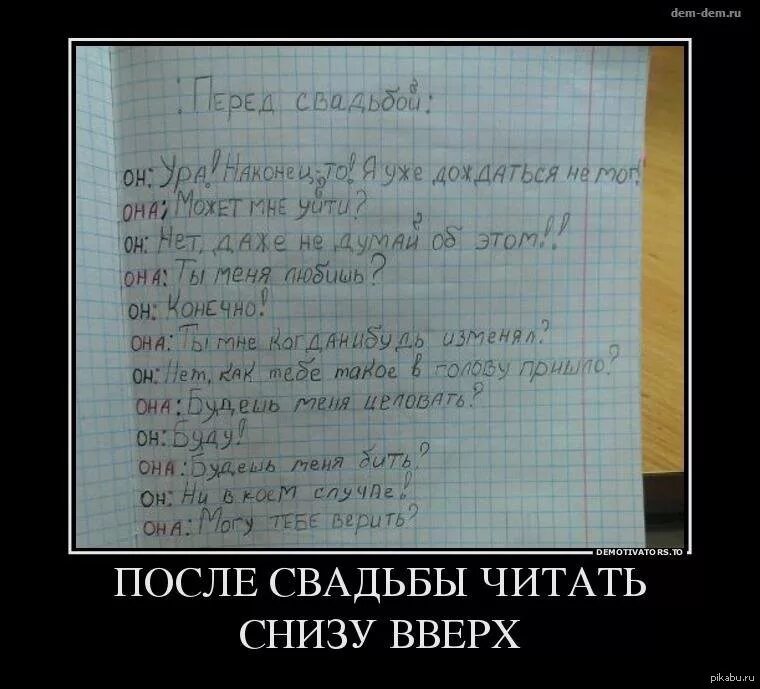 dem-dem.ru
Перед свадьбой:
он: Ура! Наконец-то! Я уже дождаться не мог!
она: Может мне уйти?
он: Нет, даже не думай об этом!!
она: Ты меня любишь?
он: Конечно!
она: Ты мне когданибудь изменял?
он: Нет, как тебе такое в голову пришло?
она: Будешь меня целовать?
он: Буду!
она: Будешь меня бить?
он: Ни в коем случае!
она: Могу тебе верить?
DEMOTIVATORS.TO
ПОСЛЕ СВАДЬБЫ ЧИТАТЬ
СНИЗУ ВВЕРХ
pikabu.ru